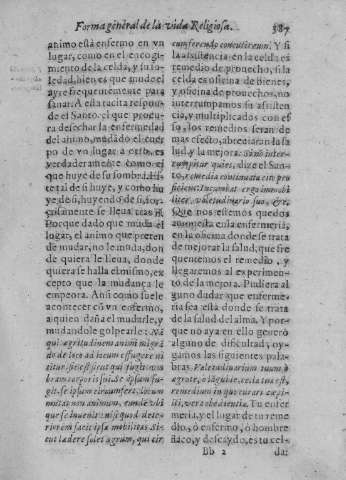 Forma general de la vida Religiosa. 387
animo está enfermo en vn
lugar, como en el encogi-
miento de la celda, y su so-
ledad, bien es que mude el
ayre frequentemente para
sanar? A esta tacita respõ-
de el Santo. el que procu-
ra desechar la enfermedad
del animo, mudãdo el cuer
po de vn lugar a otro. es
verdaderamente como el
que huye de su sombra. Es-
te tal de si huye, y como hu
ye de si, huyendo de si, for-
çosamente se lleua tras si.
Porque dado que muda el
lugar, el animo que preten
de mudar, no le muda, don
de quiera le lleua, donde
quiera se halla el mismo, ex
cepto que la mudança le
empeora. Assi como suele
acontecer cõ vn enfermo,
a quien daña el mudarle, y
mudandole golpearle: Nã
qui ægritudinem animi migrã
do de loco ad locum effugere ni
titur, sic est sicut qui fugit vm
bram corporis sui. Se ipsum fu-
git. se ipsum circumfert. Locum
mutat non animum, eundem vbi
que se inuenit: nisi quod dete-
riorem facit ipsa mobilitas. Si-
cut lædere solet ægrum, qui cir
cumferendo concutitur. Y si
la assistencia en la celda es
remedio de prouecho, si la
celda es osicina de bienes,
y osicina de prouechos, no
interrumpamos su assisten
cia, y multiplicados con es
so, los remedios seran de
mas efecto, abreuiaran la sa
lud, y la mejora. Sino inter-
rumpitur quies, dize el San-
to, remedia continuata cito pro
ficient. Incumbat ergo immobi
liter. valetudinario suo, &c.
Que nos estemos quedos
amonesta en la enfermeria,
en la osicina donde se trata
de mejorar la salud, que fre
quentemos el remedio, y
llegaremos al experimen-
to de la mejora. Pudiera al
guno dudar que enferme-
ria sea esta donde se trata
de la salud del alma. Y por-
que no aya en ello genero
alguno de dificultad, oy-
gamos las siguientes pala-
bras. Valetudinarium tuum, ò
ægrote, ò languide, cella tua est,
remedium quo curari cœpi-
sti, vera obedientia. Tu enfer
meria, y el lugar de tu reme
dio, ò enfermo, ò hombre
flaco, y descaydo, es tu cel-
Bb 2 da: